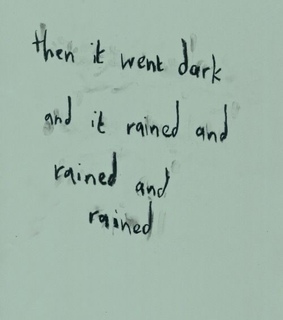 then it went dark
and it rained and
rained and
rained